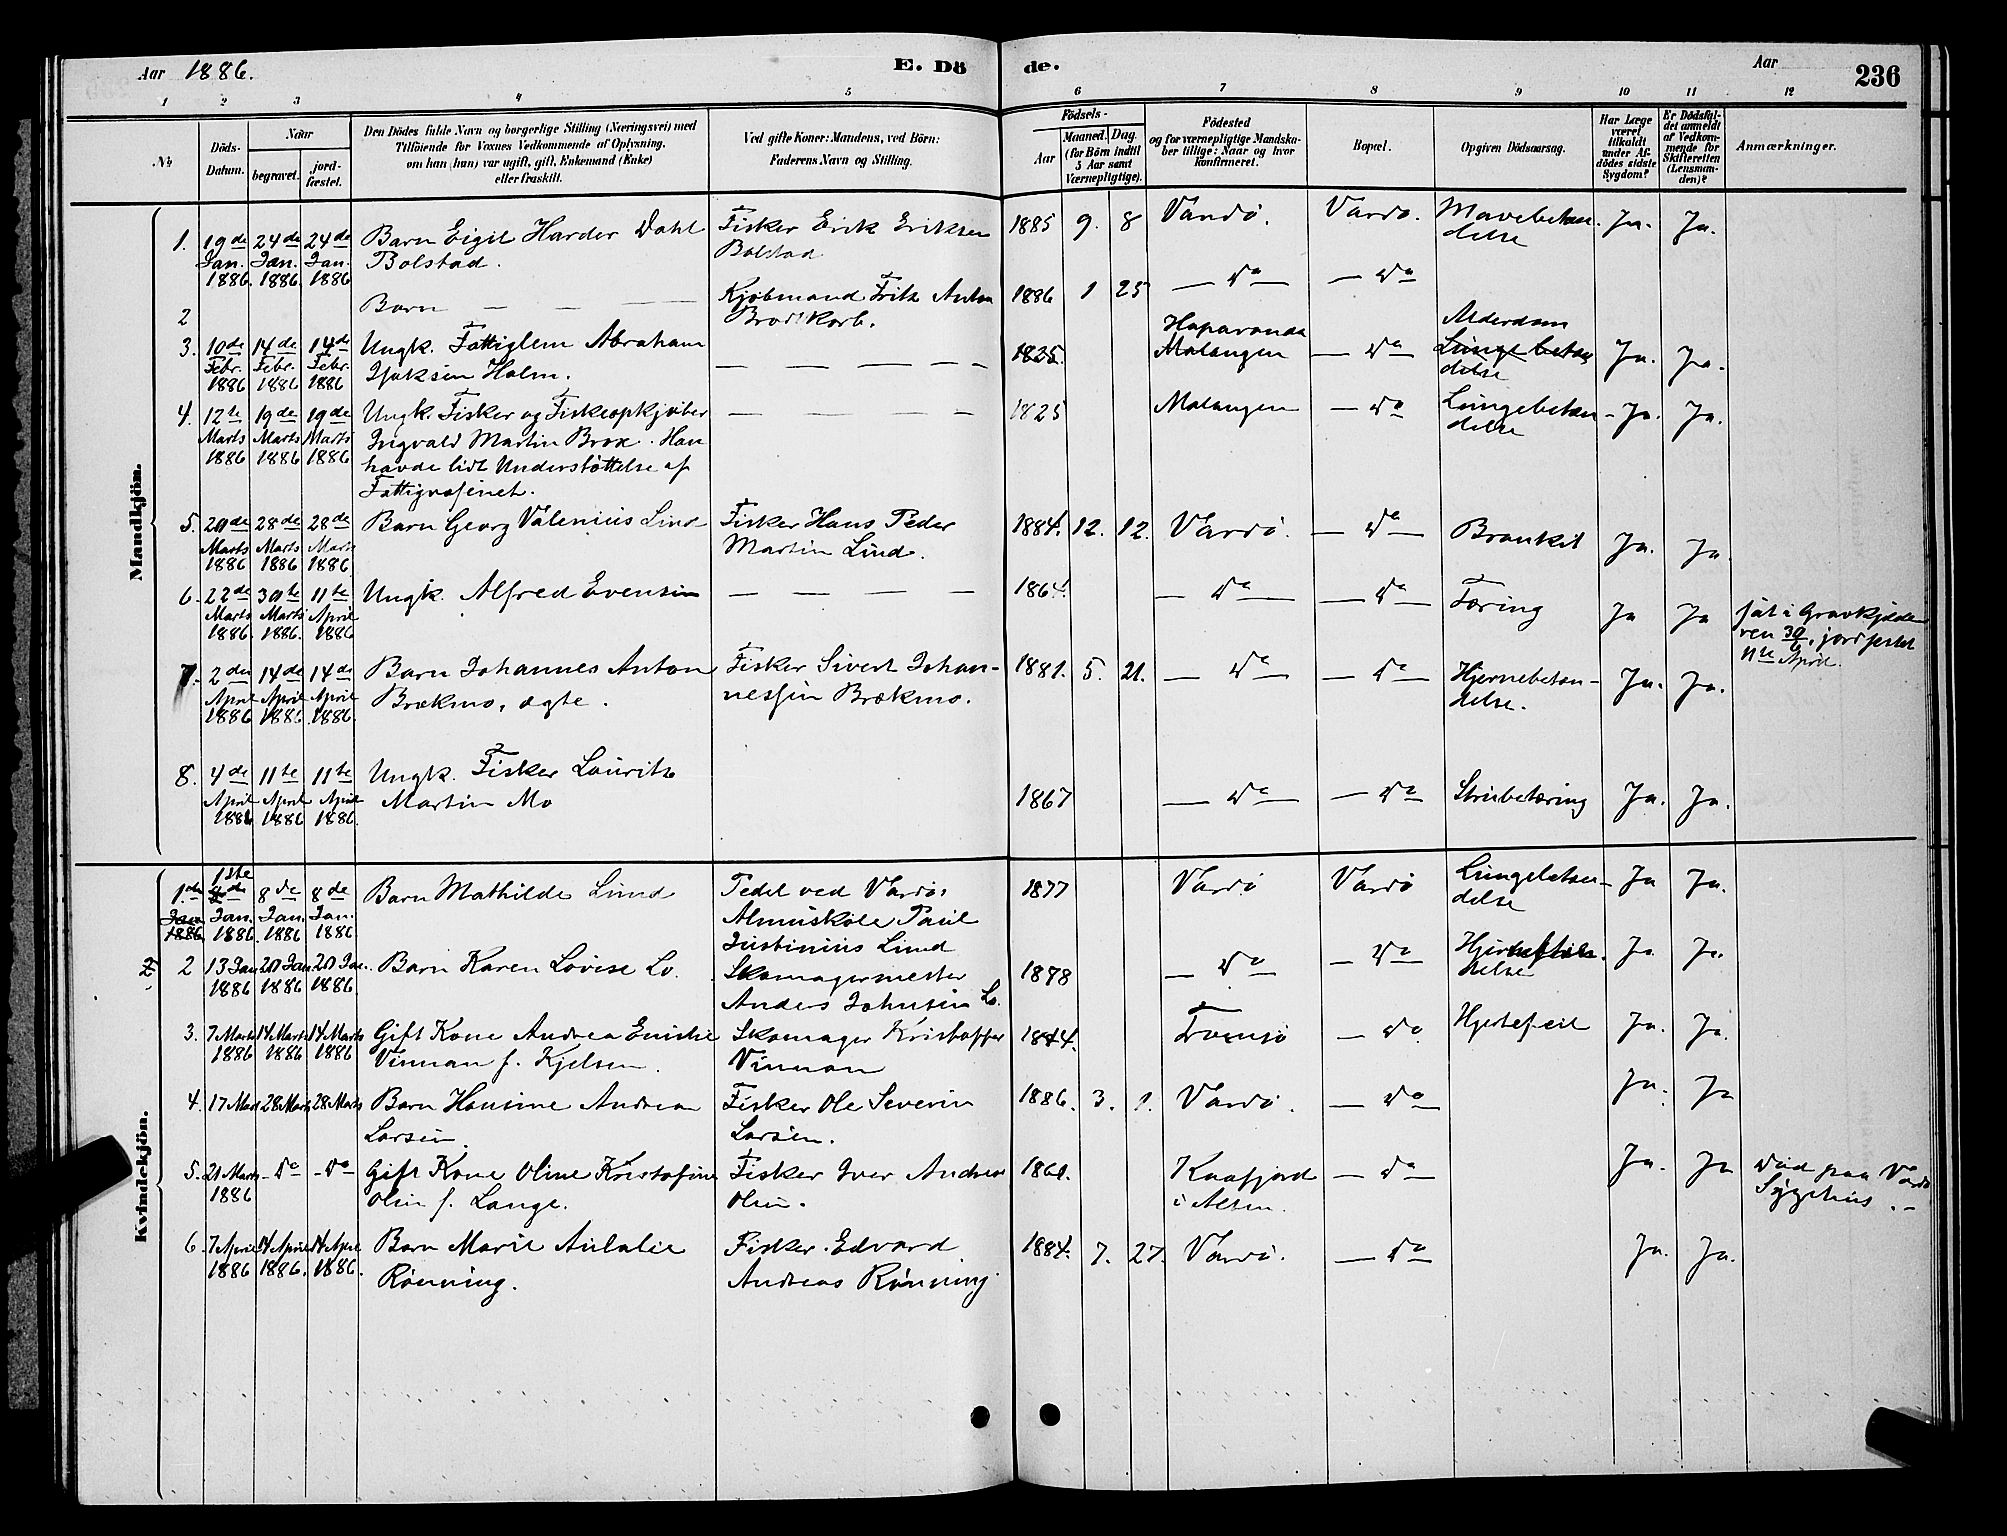 Aar 1886.
E. Dö
de.
Aar
236
1 2 3 4 5 6 7 8 9 10 11 12
No.
Döds-
Datum.
Naar
begravet.
jord-
fæstet.
Den Dödes fulde Navn og borgerlige Stilling (Næringsvei) med
Tilföiende for Voxnes Vedkommende af Oplysning,
om han (hun) var ugift, gift, Enkemand (Enke)
eller fraskilt.
Ved gifte Koner: Mandens, ved Börn:
Faderens Navn og Stilling.
Födsels-
Aar
Maaned. Dag.
(for Börn indtil
5 Aar samt
Værnepligtige).
Födested
og for værnepligtige Mandska-
ber tillige: Naar og hvor
konfirmeret.
Bopæl.
Opgiven Dödsaarsag.
Har Læge
været
tilkaldt
under Af-
dödes sidste
Sygdom?
Er Dödsfal-
det anmeldt
af Vedkom-
mende for
Skifteretten
(Lensman-
den)?
Anmærkninger.
Mandkjön.
1. 19de 24de 24de Barn Eigil Harder Dahl Fisker Erik Eriksen 1885 9. 8 Vardö. Vardö. Mavebetæn- Ja. Ja.
Jan. Jan. Jan. Bolstad. Bolstad delse
1886. 1886. 1886
2 Barn — — — Kjöbmand Fritz Anton 1886 1 25 — do — — do
Brodtkorb.
Haparanda Alderdom
3. 10de 14de 14de Ungk. Fattiglem Abraham — — — — — 1825. Malangen — do — Lungebetæn Ja. Ja.
Febr. Febr. Febr. Isaksen Holm. delse
1886 1886 1886
4. 12te 19de 19de Ungk. Fisker og Fiskeopkjöber — — — — 1825 Malangen — do Lungebetæn- Ja. Ja.
Marts Marts Marts Ingvald Martin Brox. Han delse
1886 1886 1886 havde lidt Understöttelse af
Fattigvæsenet.
5. 20de 28de 28de Barn Georg Valenius Lind Fisker Hans Peder 1884. 12. 12. Vardö. — do — Bronkit Ja. Ja
Marts Marts Marts Martin Lind.
1886 1886 1886
6. 22de 30te 11te Ungk. Alfred Evensen — — — — 1864. — do — — do — Tæring Ja Ja sat i Gravkjæde
Marts Marts April ren 30, jordfestet
1886. 1886. 1886 11te April.
7. 2den 14de 14de Barn Johannes Anton Fisker Sivert Johan- 1881. 5. 21. — do — — do — Hjernebetæn- Ja. Ja.
April April April Brækmo, ægte. nessen Brækmo. delse.
1886 1886 1886
8. 4de 11te 11te Ungk. Fisker Lauritz 1867 — do — — do — Strubetæring Ja. Ja.
April April April Martin Mo
1886 1886 1886.
Kvindekjön.
1ste
1. de 8de 8de Barn Mathilde Lund Pedel ved Vardö 1877 Vardö Vardö Lungebetæn- Ja Ja.
Jan Jan. Jan. Jan. Almuskole Paul delse
1886 1886. 1886 1886 Justinius Lund
2 13 Jan 20 Jan 20 Jan. Barn Karen Lovise Lo. Skomagermester 1878 — do — — do — Ja Ja.
1886 1886 1886. Anders Johnsen Lo. delse
3. 7 Marts 14 Marts 14 Marts Gift Kone Andrea Emilie Skomager Kristoffer 1844. Tromsö — do Hjertefeil Ja. Ja.
1886 1886 1886 Vinman f. Kjelsen. Vinman
4. 17 Mar 28 Marts 28 Marts Barn Hansine Andrea Fisker Ole Severin 1886. 3. 1. Vardö. — do — Ja. Ja
Larsen. Larsen.
5. 21 Marts - do - do Gift Kone Oline Kristofine Fisker Iver Andrea 1860. Kaafjord — do — Ja. Ja död paa Vardö
1886 Olsen f. Lange. Olsen. i Alten. Sygehus.-
6. 7 April 14 April 14 April Barn Marie Aulalie Fisker Edvard 1884. 7. 27. Vardö. — do — Ja. Ja.
1886 1886. 1886. Rönning. Andreas Rönning.